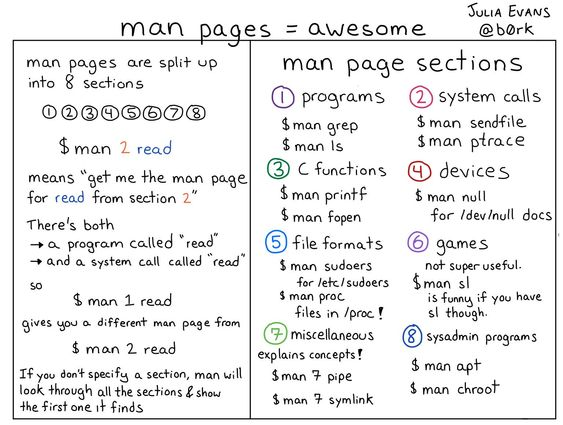 man pages = awesome
JULIA EVANS
@b0rk
man pages are split up
into 8 sections
1 2 3 4 5 6 7 8
$ man 2 read
means "get me the man page
for read from section 2"
There's both
→ a program called "read"
→ and a system call called "read"
so
$ man 1 read
gives you a different man page from
$ man 2 read
If you don't specify a section, man will
look through all the sections & show
the first one it finds
man page sections
1 programs
$ man grep
$ man ls
2 system calls
$ man sendfile
$ man ptrace
3 C functions
$ man printf
$ man fopen
4 devices
$ man null
for /dev/null docs
5 file formats
$ man sudoers
for /etc/sudoers
$ man proc
files in /proc!
6 games
not super useful.
$ man sl
is funny if you have
sl though.
7 miscellaneous
explains concepts!
$ man 7 pipe
$ man 7 symlink
8 sysadmin programs
$ man apt
$ man chroot